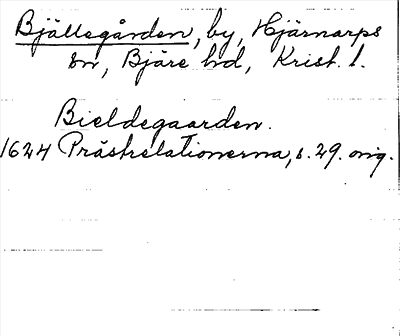 Bjällegården, by, Hjärnarps
sn, Bjäre hd, Krist. l.
Bieldegaarden.
1624 Prästrelationerna, s. 29. orig.